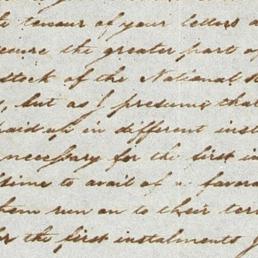 tenour of your letters a
secure the greater part of
stock of the National B
, but as I presume that
paid up in different inst
necessary for the first in
time to avail of a favora
them run on to their ter
for the first instalments I